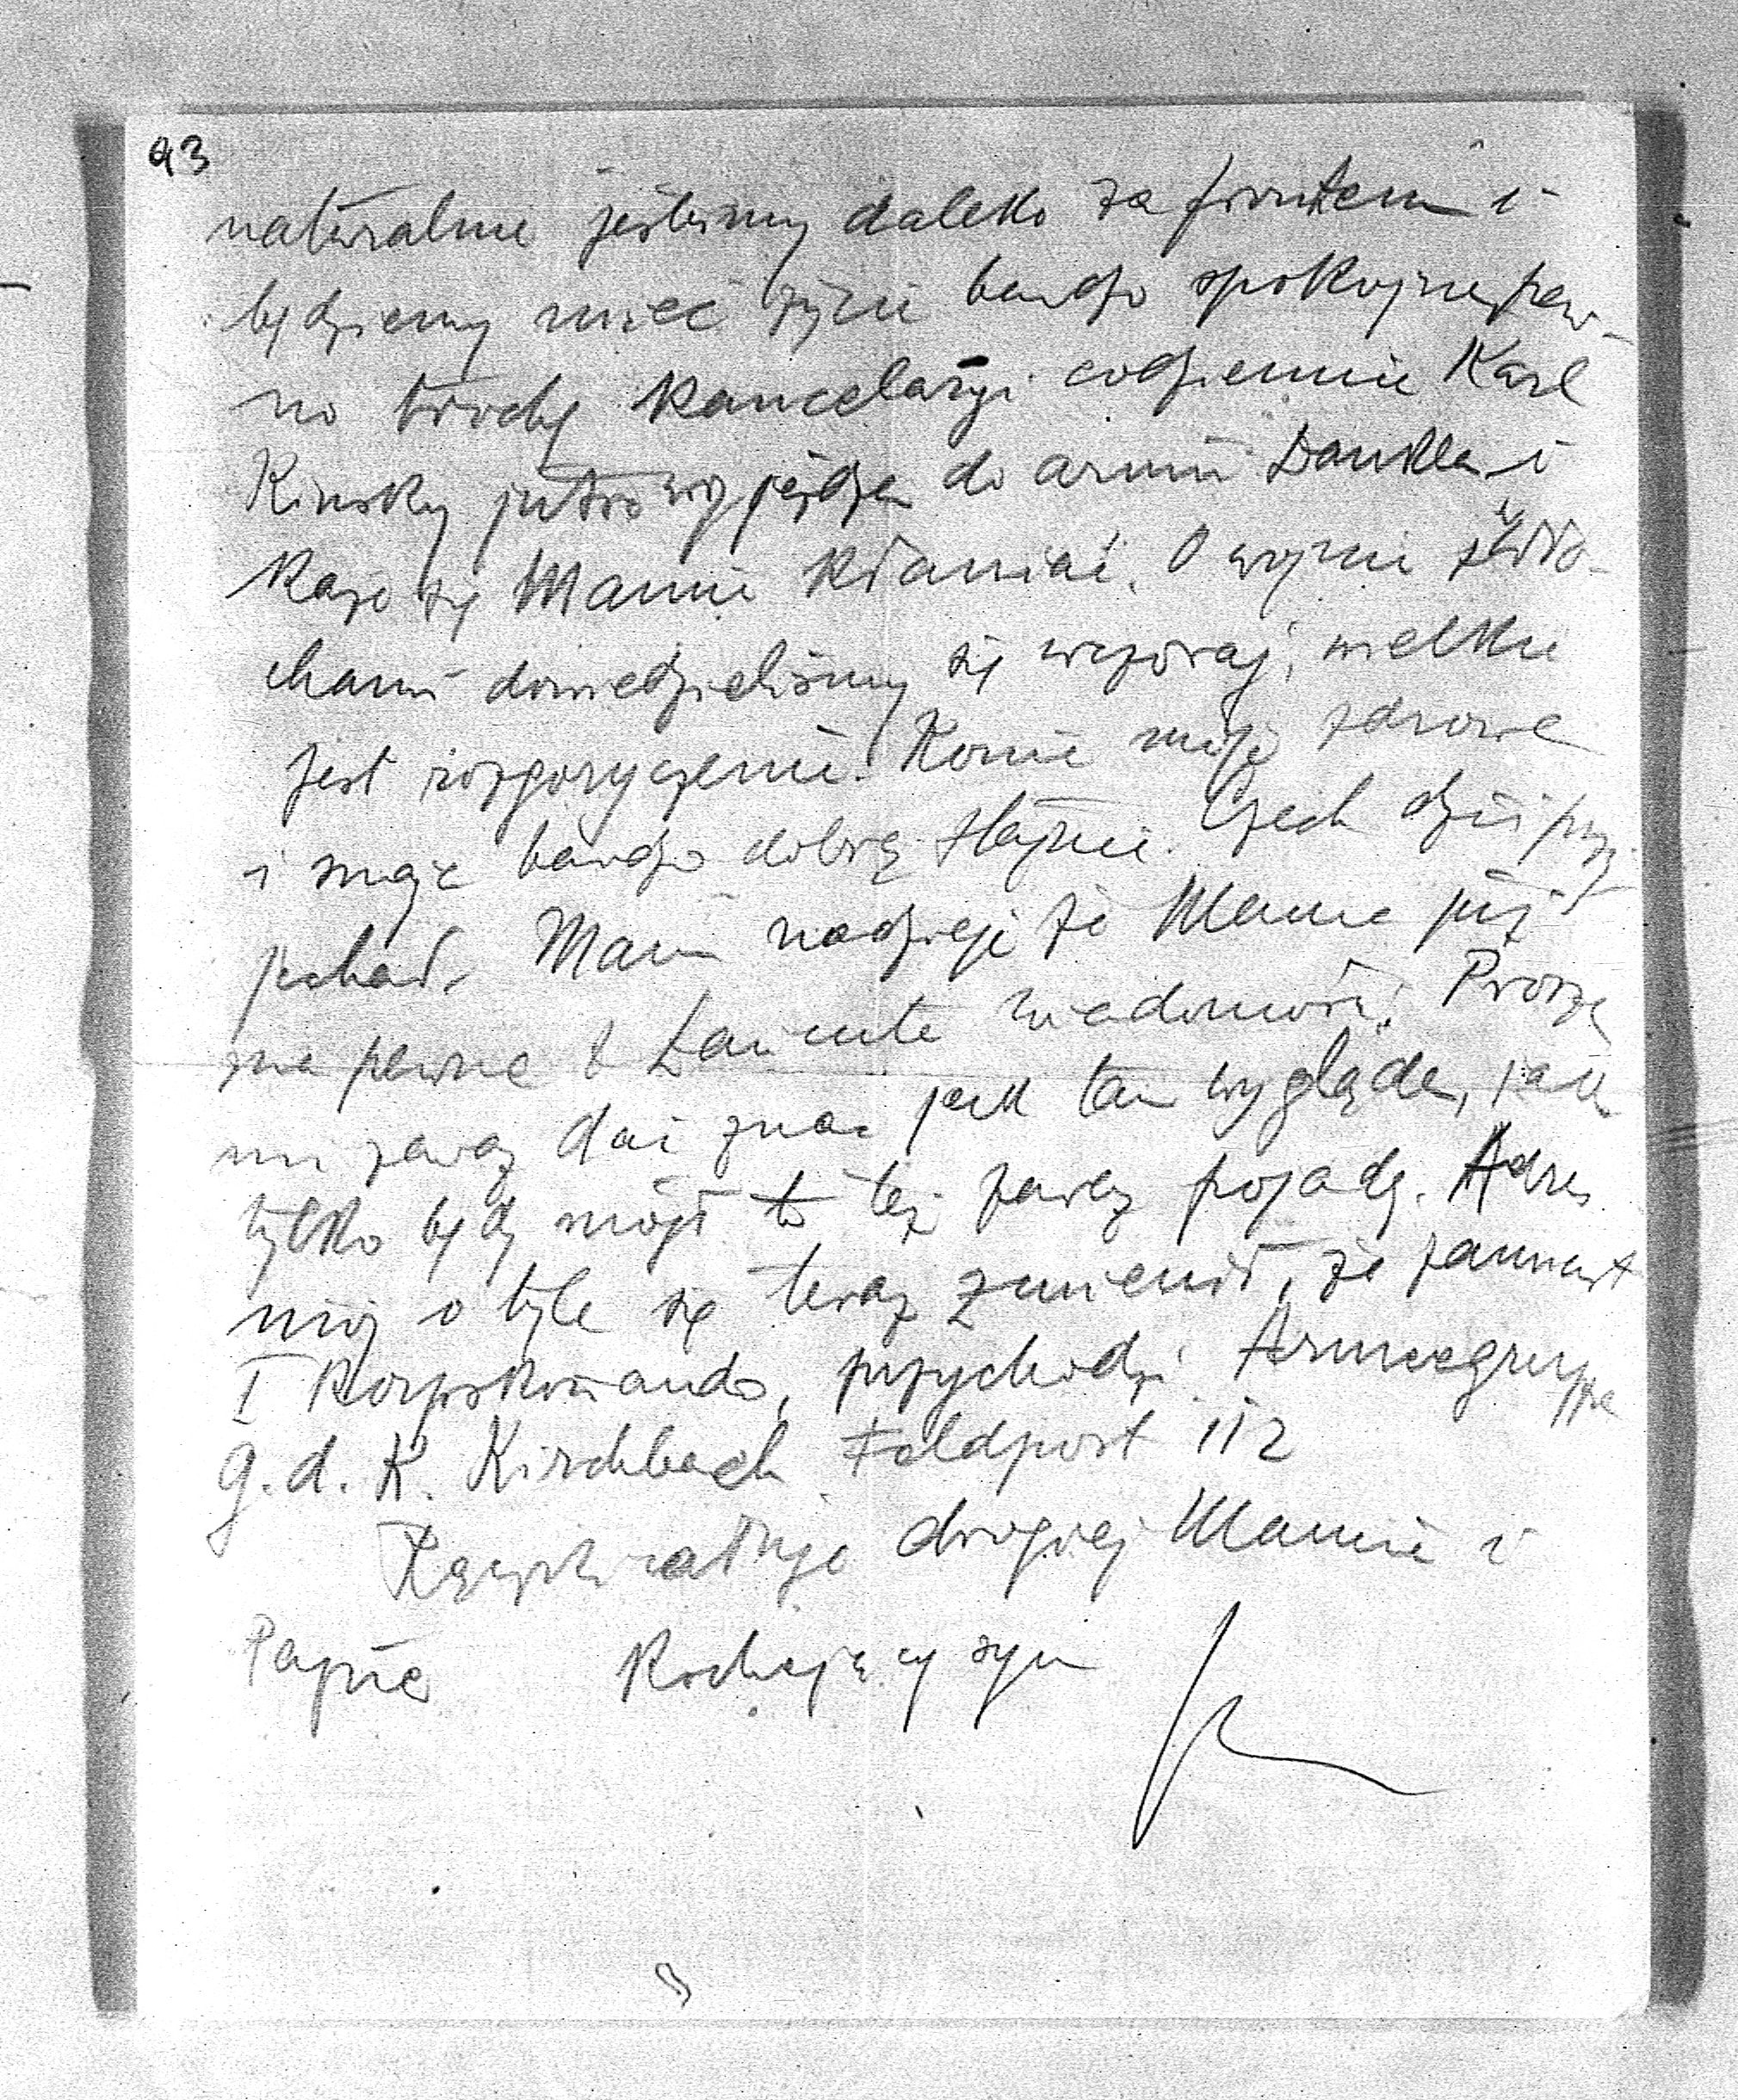 93
naturalnie jesteśmy daleko za frontem i
będziemy mieć życie bardzo spokojne, pew-
no trochę kancelaryi codziennie Karl
Kinsky jutro wyjeżdża do armii Dankla i
każe się Mamie kłaniać. O wojnie z Wło-
chami dowiedzieliśmy się wczoraj, wielkie
jest rozgoryczenie. Konie moje zdrowe
i mają bardzo dobrą stajnie. Czech dziś przy-
jechał. Mam nadzieję że Mama już
ma pewne z Łańcuta wiadomości. Proszę
mi zaraz dać znać jak tam wygląda, jak
tylko będę mógł to też zaraz pojadę. Adres
mój o tyle się teraz zmienił, że zamiast
I Korpskomando, przychodzi Armeegruppe
G. d. K. Kirchbach Feldpost 112
Rączki całuje drogiej Mamie i
Papie Kochający syn